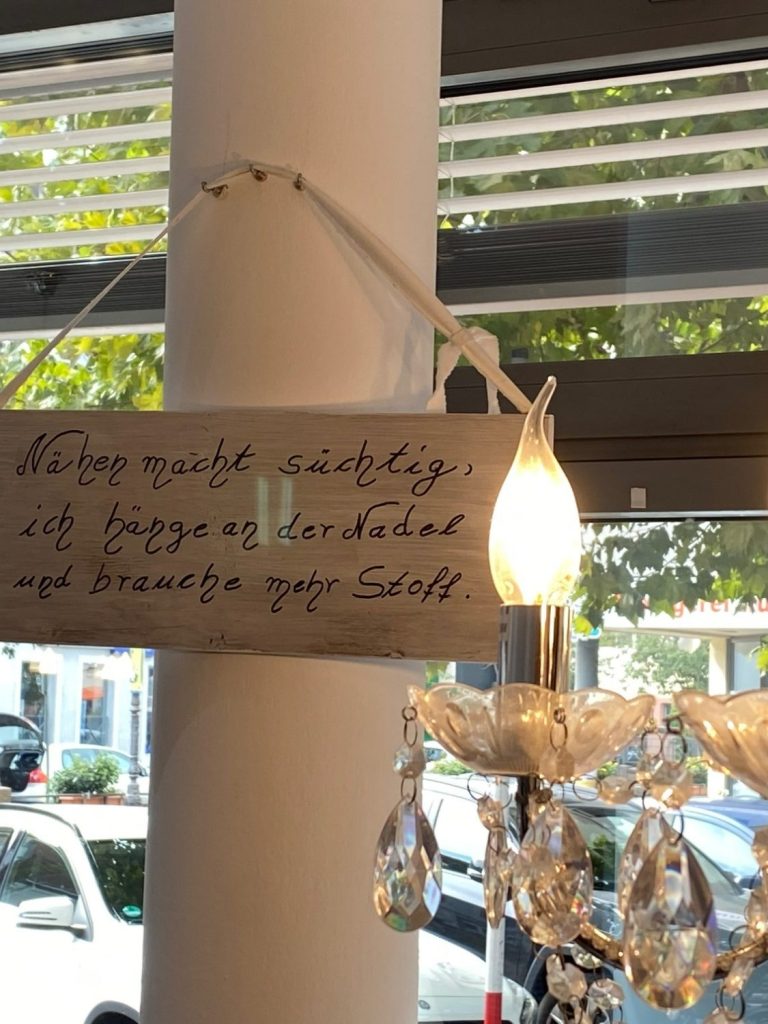 Nähen macht süchtig,
ich hänge an der Nadel
und brauche mehr Stoff.